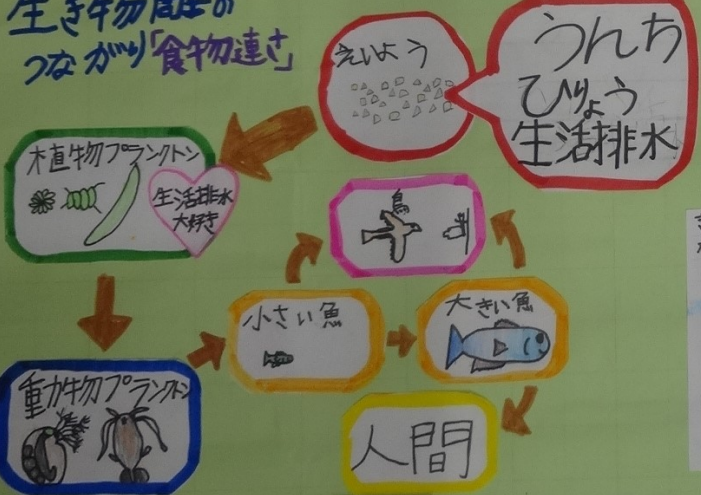 生き物同士の
つながり「食物連さ」
えいよう
うんち
ひりょう
生活排水
植物プランクトン
生活排水
大好き
鳥
小さい魚
大きい魚
動物プランクトン
人間